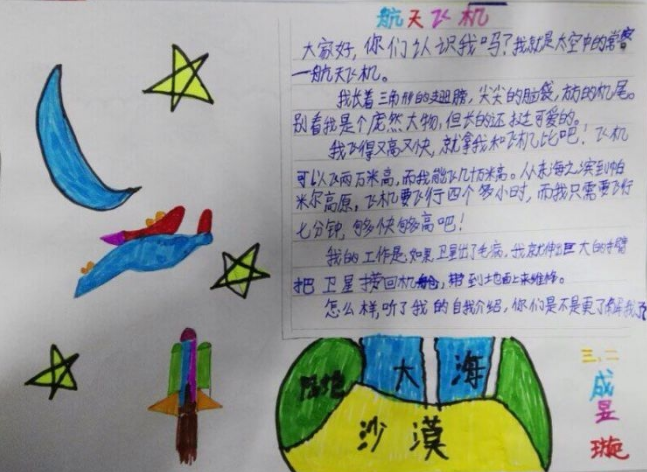 航天飞机
大家好,你们认识我吗?我就是太空中的常客
—航天飞机。
我长着三角形的翅膀,尖尖的脑袋,方方的机尾。
别看我是个庞然大物,但长的还挺可爱的。
我飞得又高又快,就拿我和飞机比吧!飞机
可以飞两万米高,而我能飞几十万米高。从东海之滨到帕
米尔高原,飞机要飞行四个多小时,而我只需要飞行
七分钟,够快够高吧!
我的工作是,如果卫星出了毛病,我就伸出巨大的手臂
把卫星捞回机舱,带到地面上来维修。
怎么样,听了我的自我介绍,你们是不是更了解我了
陆地
大海
沙漠
三、二
成
昱
璇